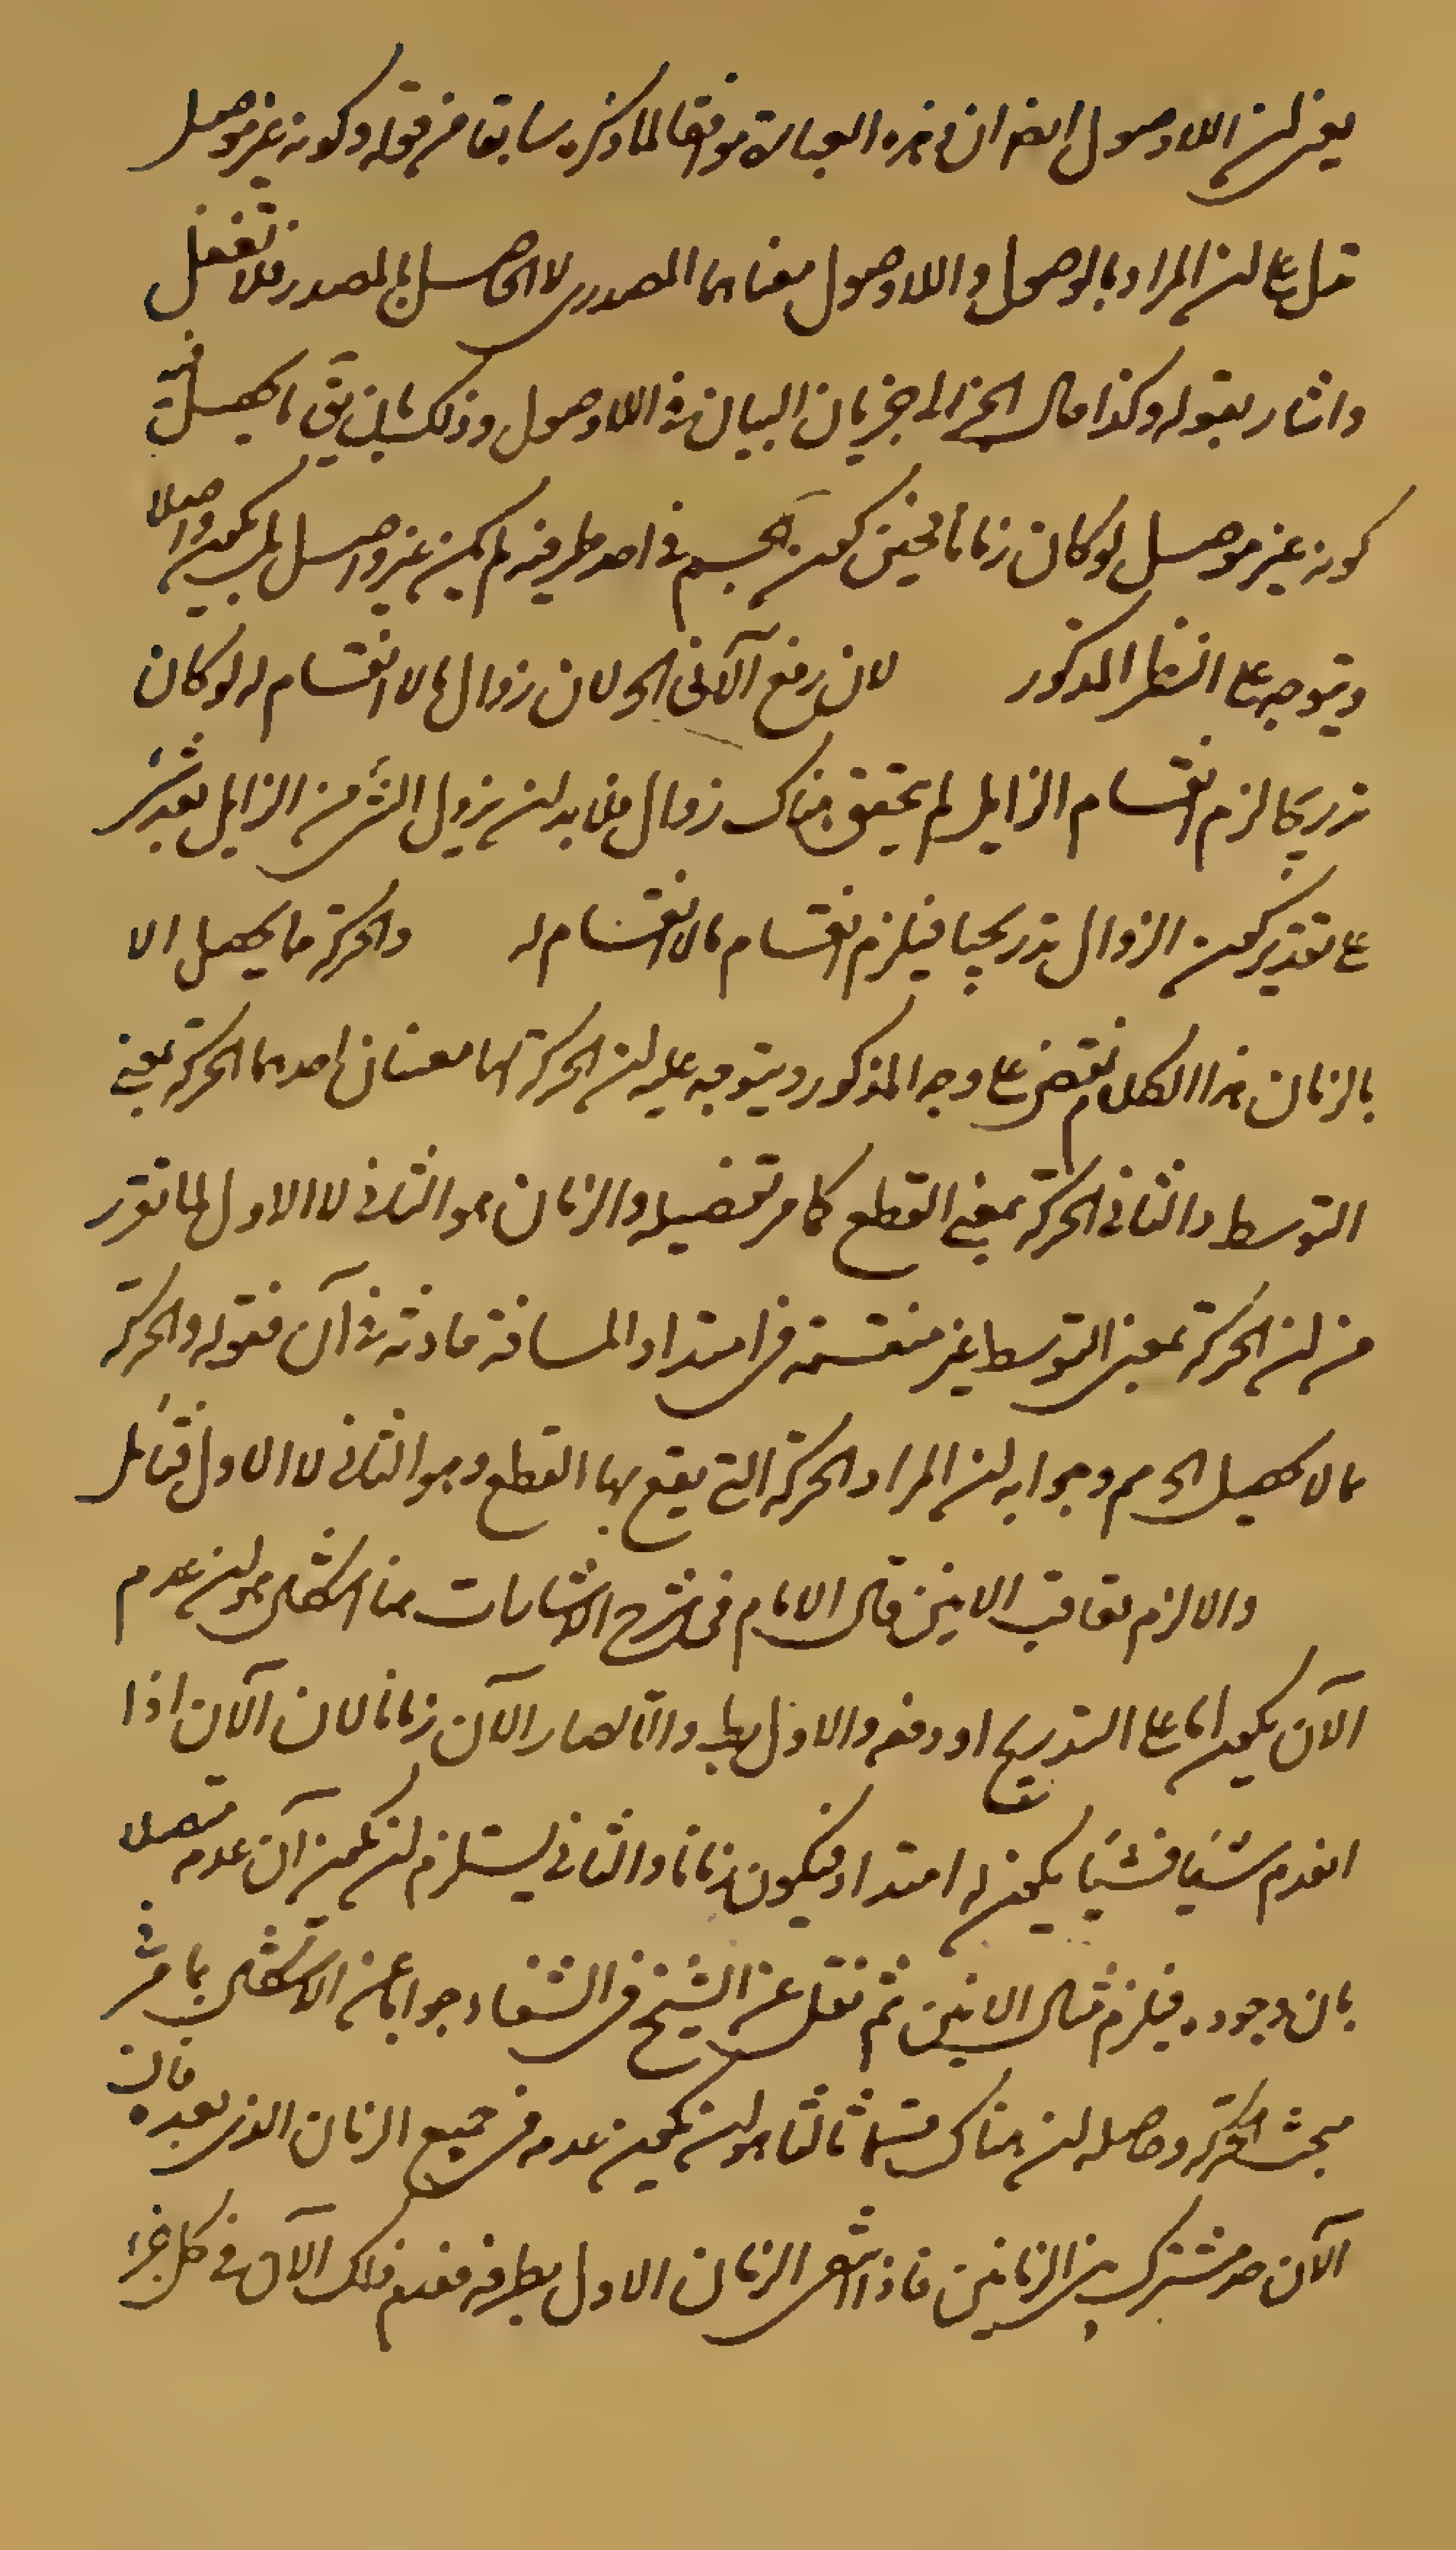 يعنى ان اللاوصول ايضا ان فى هذه العبارة موافقا لما ذكره سابقا من قوله وكونه غير موصل
تدل على ان المراد بالوصول واللاوصول معناهما المصدرى لا الحاصل بالمصدر فلا تغفل
واشار بقوله وكذا حال الخ الى جريان البيان فى اللاوصول وذلك بان يق ما يحصل فيه
كونه غير موصل لو كان زمانا فحين كون الجسم فى احد طرفيه لم يكن غير واصل بل يكون واصلا
ويتوجه على النظر المذكور لان رفع الآنى الخ لان زوال ما لا انقسام له لو كان
تدريجا لزم انقسام الزايل لم يتحقق هناك زوال فلا بد ان يزول الشئ من الزايل بعد شئ
على تقدير كون الزوال تدريجيا فيلزم انقسام ما لا انقسام له والحركة ما يحصل الا
بالزمان هذا الكلام نقض على وجه المذكور ويتوجه عليه ان الحركة لها معنيان احدهما الحركة بمعنى
التوسط والثانى الحركة بمعنى القطع كما مر تفصيله والزمان هو الثانى لا الاول لما تقرر
من ان الحركة بمعنى التوسط غير منقسمة فى امتداد المسافة حادثة فى آن فقوله والحركة
مما لا يحصل الخ مم وجوابه ان المراد الحركة التى يقع بها القطع وهو الثانى لا الاول فتامل
والا لزم تعاقب الانين قال الامام فى شرح الاشارات هنا اشكال هو ان عدم
الآن يكون اما على التدريج او دفعة والاول بط والا لصار الآن زمانا لان الآن اذا
انعدم شيئا فشيئا يكون له امتداد فيكون زمانا والثانى يستلزم ان يكون آن عدمه متصلا
بان وجوده فيلزم تتالى الانين ثم نقل عن الشيخ فى الشفاء جوابا عن الاشكال بما مر فى
مبحث الحركة وحاصله ان هناك قسما ثالثا هو ان يكون عدمه فى جميع الزمان الذى بعده فان
الآن حد مشترك بين الزمانين فاذا انتهى الزمان الاول بطرفه فعدم ذلك الآن فى كل جزء